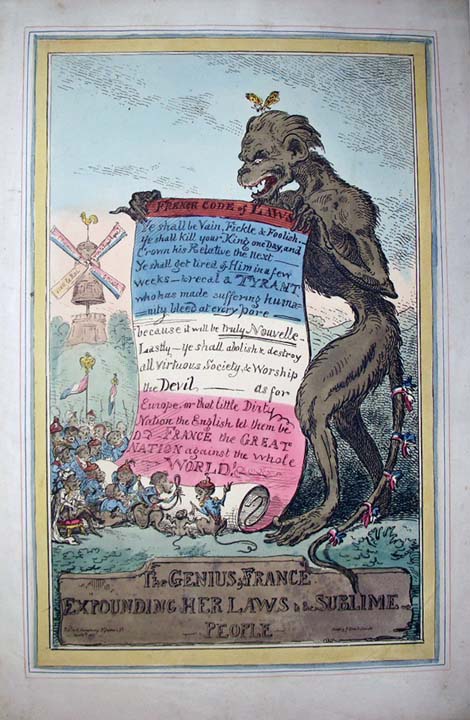 FRENCH CODE of LAWS
Ye shall be Vain, Fickle & Foolish.—
Ye shall Kill your King one Day, and
Crown his Relative the next —
Ye shall get tired of Him in a few
weeks — & recal a TYRANT
who has made suffering huma=
=nity bleed at every pore —
because it will be truly Nouvelle —
Lastly — ye shall abolish & destroy
all virtuous Society, & Worship
the Devil — as for
Europe or that little Dirty
Nation the English let them be
D—D FRANCE the GREAT
NATION against the whole
WORLD!
The GENIUS of FRANCE
EXPOUNDING HER LAWS to the SUBLIME
— PEOPLE —